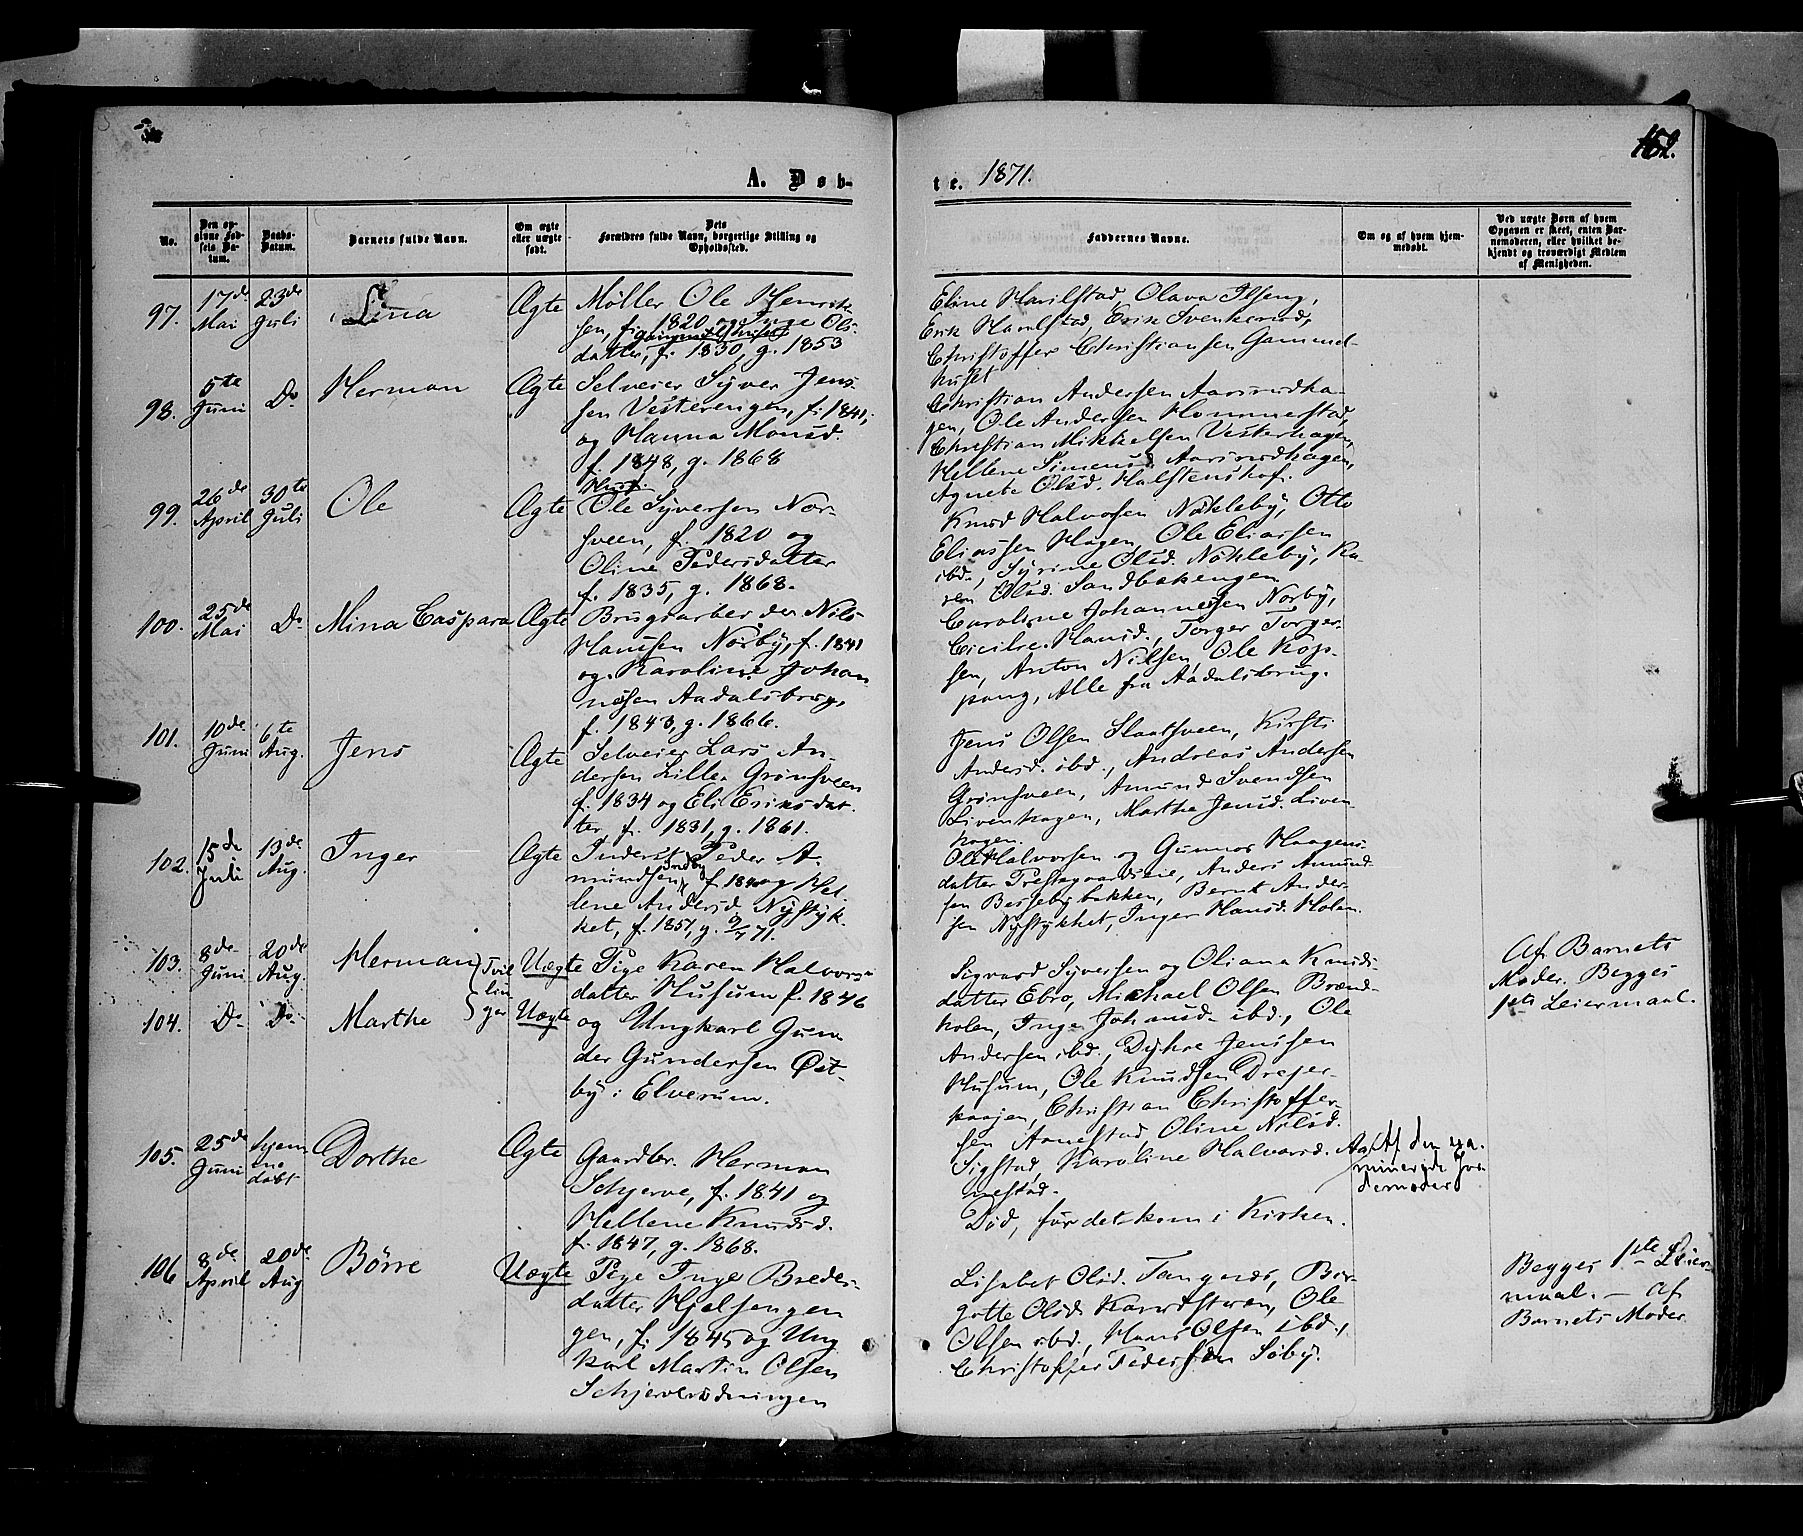 152.
A. Døb-
te. 1871.
No.
Den op-
givne Fød-
sels Da-
tum.
Daabs-
Datum.
Barnets fulde Navn.
Om ægte
eller uægte
født.
Dets
Forældres fulde Navn, borgerlige Stilling og
Opholdssted.
Faddernes Navne.
Om og af hvem hjem-
medøbt.
Ved uægte Børn af hvem
Opgaven er skeet, enten Bar-
nemoderen, eller hvilket be-
kjendt og troværdigt Medlem
af Menigheden.
97.
17de
Mai
23de
Juli
Lina
Ægte
Møller Ole Henrik-
sen, f. 1820 og Inge Ols-
Gammelshuset
datter, f. 1830, g. 1853
Eline Havilstad, Olava Ilseng,
Erik Havilstad, Erik Svenkerud,
Christoffer Christiansen Gammel-
huset
98.
5te
Juni
Do
Herman
Ægte
Selveier Syver Jens-
sen Vesterengen, f. 1841,
og Hanna Monsd.
f. 1848, g. 1868
Christian Andersen Aasrudha-
gen, Ole Andersen Hommerstad,
Christian Mikkelsen Vesterhagen,
Hellene Simensd. Aasrudhagen,
Agnete Olsd. Halstenshof.
99.
26de
April
30te
Juli
Ole
Ægte
Husf.
Ole Syversen Nor-
sveen, f. 1820 og
Oline Pedersdatter
f. 1835, g. 1868.
Knud Halvorsen Nokleby, Otto
Eliassen Hagen, Ole Eliassen
ibd., Syrine Olsd. Nokleby, Ka-
ren Olsd. Sandbakengen
100.
25de
Mai
Do
Mina Caspara
Ægte
Brugsarbeider Nils
Hansen Norby, f. 1841
og Karoline Johan-
nesen Aadalsbrug,
f. 1843, g. 1866.
Caroline Johannesen Norby,
Cicilie Hansd., Torger Torger-
sen, Anton Nilsen, Ole Kop-
pang, Alle fra Aadalsbrug.
101.
10de
Juni
6te
Aug.
Jens
Ægte
Selveier Lars An-
dersen Lille Grønsveen
f. 1834 og Eli Eriksdat-
ter, f. 1831, g. 1861.
Jens Olsen Slaatsveen, Kirsti
Andersd. ibd., Andreas Andersen
Grønsveen, Amund Svendsen
Livenhagen, Marthe Jensd. Liven-
hagen.
102.
15de
Juli
13de
Aug.
Inger
Ægte
Inderst Peder A-
mundsen Indby, f. 184 og Hel-
lene Andersd. Nystyk-
ket, f. 1851, g. 9/7 71.
Ole Halvorsen og Gunnor Haagens-
datter Prestegaardseie, Anders Amund-
sen Bessebybakken, Bernt Ander-
sen Nystykket, Inger Hansd. Holen.
103.
8de
Juni
20de
Aug.
Herman
Tvil
lin
ger
Uægte
Pige Karen Halvors-
datter Husum f. 1846
104.
Do
Do
Marthe
Uægte
og Ungkarl Gun-
der Gundersen Øst-
by i Elverum.
Sigvard Syversen og Oliana Knuds-
datter Ebro, Michael Olsen Brænd-
holen, Inge Johansd. ibd., Ole
Andersen ibd., Dyhre Jenssen
Husum, Ole Knudsen Dreier-
haajen, Christian Christoffer-
sen Aanestad, Oline Nilsd.
Sigstad, Karoline Halvorsd. Aa-
nestad.
Af Barnets
Moder. Begges
1ste Leiermaal.
105.
25de
Juni
hjem
me
døbt
Dorthe
Ægte
Gaardbr. Herman
Schjerve, f. 1841 og
Hellene Knudsd.
f. 1847, g. 1868.
Død, før det kom i Kirken.
Af den exa-
minerede Jor-
demoder
106
8de
April
20de
Aug
Børre
Uægte
Pige Inger Breder-
datter Hjelsengen
gen, f. 1845 og Ung-
karl Martin Olsen
Schjerverudningen
Lisabet Olsd. Tangenes, Bir-
gitte Olsd. Karudstuen, Ole
Olsen ibd., Hans Olsen ibd.,
Christoffer Pedersen Søby.
Begges 1ste Leier-
maal. — Af
Barnets Moder.